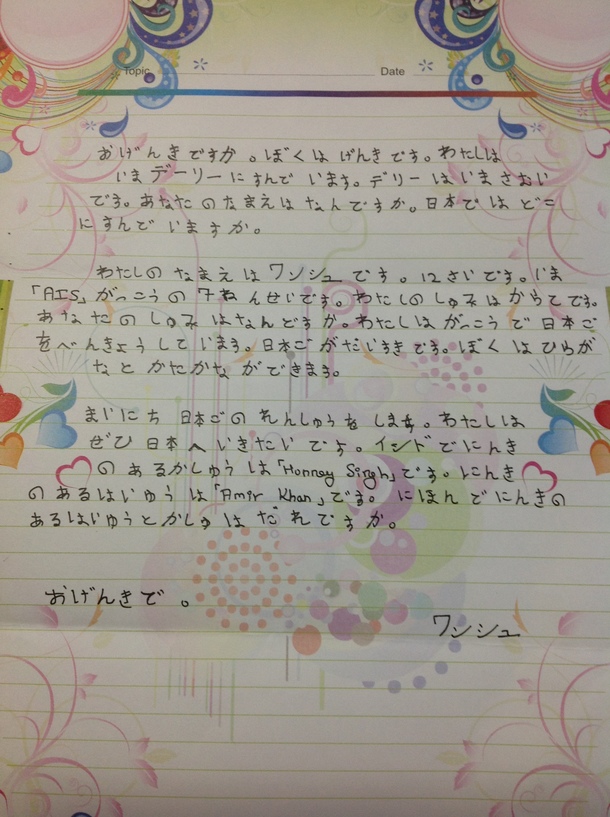 Topic Date
おげんきですか。ぼくはげんきです。わたしは
いまデーリーにすんでいます。デリーはいまさむい
です。あなたのなまえはなんですか。日本ではどこ
にすんでいますか。
わたしのなまえはワンシュです。12さいです。いま
「AIS」がっこうの7ねんせいです。わたしのしゅみはからてです。
あなたのしゅみはなんですか。わたしはがっこうで日本ご
をべんきょうしています。日本ごがだいすきです。ぼくはひらが
なとかたかなができます。
まいにち日本ごのれんしゅうをします。わたしは
ぜひ日本へいきたいです。インドでにんき
のあるかしゅうは「Honney Singh」です。にんき
のあるはいゆうは「Amir Khan」です。にほんでにんきの
あるはいゆうとかしゅはだれですか。
おげんきで。
ワンシュ